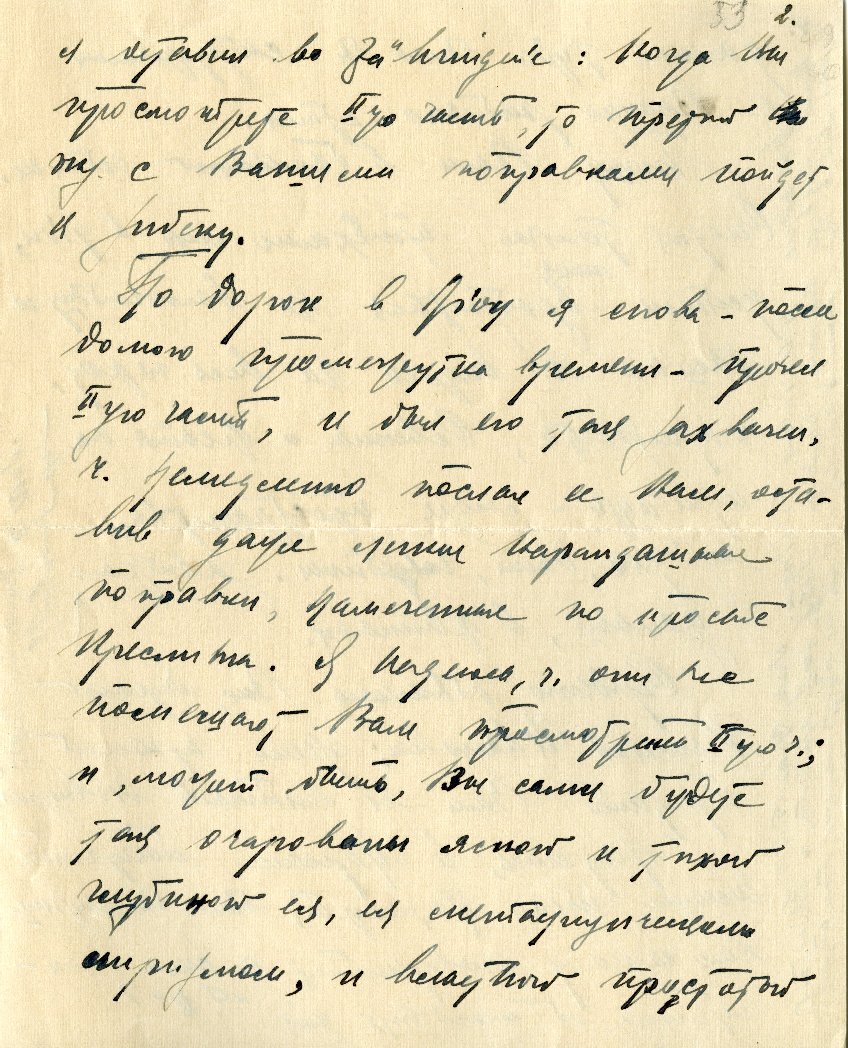 53 2.
я оставил во Zähringer'е: когда Вы
просмотрете IIую часть, то третий
экз. с Вашими поправками пойдет
к Зибеку.
По дороге в Rivy я снова – после
долгого промежутка времени – прочел
IIую часть, и был ею так захвачен,
ч. немедленно послал ее Вам, оста-
вив даже легкие карандашные
поправки, намеченные по просьбе
Креслинга. Я надеюсь, ч. они не
помешают Вам просмотреть IIую ч.;
и, может быть, Вы сами будете
так очарованы ясной и тихой
глубиной ея, ея метафизическим
лиризмом, и властной простотой